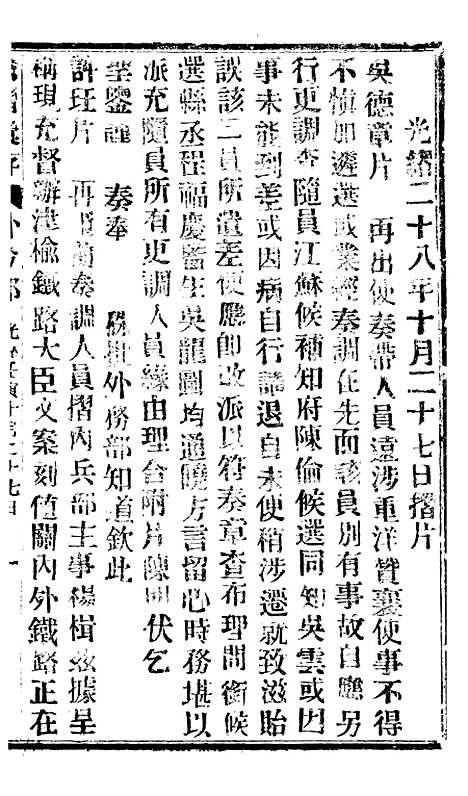 光緒二十八年十月二十七日摺片
吳德章片 再出使奏帶人員遠涉重洋贊襄使事不得
不慎加遴選或業經奏調在先而該員別有事故自應另
行更調查隨員江蘇候補知府陳倫候選同知吳雲或因
事未能到差或因病自行請退自未便稍涉遷就致滋貽
誤該二員所遺差使應卽改派以符奏章查布理問銜候
選縣丞程福慶畜生吳龍圖均通曉方言留心時務堪以
派充隨員所有更調人員緣由理合附片陳明伏乞
聖鑒謹 奏奉 硃批外務部知道欽此
許珏片 再 奏調人員摺內兵部主事楊楫茲據呈
稱現充督辦津榆鐵路大臣文案刻値關內外鐵路正在
外務部